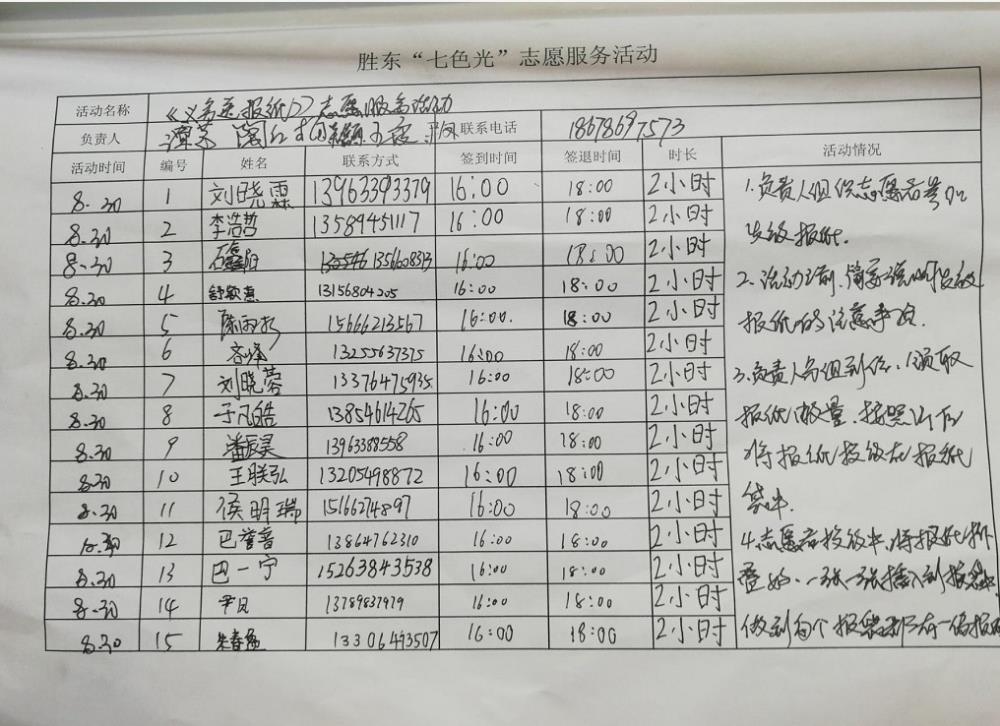 胜东“七色光”志愿服务活动
活动名称 《义务送报纸》志愿服务活动
负责人 联系电话 18678697573
活动时间 编号 姓名 联系方式 签到时间 签退时间 时长 活动情况
8.30 1 刘晓霖 13963393379 16:00 18:00 2小时
8.30 2 李浩哲 13589451117 16:00 18:00 2小时
8.30 3 16:00 18:00 2小时
8.30 4 13156804205 16:00 18:00 2小时
8.30 5 15666213567 16:00. 18:00 2小时
8.30 6 13255637375 16:00 18:00 2小时
8.30 7 刘晓蓉 13376475935 16:00 18:00 2小时
8.30 8 于凡皓 13854614265 16:00 18:00 2小时
8.30 9 潘辰昊 13963388558 16:00 18:00 2小时
8.30 10 王联弘 13205498872 16:00 18:00 2小时
8.30 11 侯明瑞 15166274897 16:00 18:00 2小时
12 巴誉喜 13864762310 16:00 18:00 2小时
8.30 13 巴一宁 15263843538 16:00 18:00 2小时
8.30 14 13789837979 16:00 18:00 2小时
8.30 15 13306493507 16:00 18:00 2小时
1.负责人组织志愿者
发放报纸.
2.活动之前,简要说明发放
报纸的注意事项.
3.负责人分组到位、领取
报纸数量,按照
将报纸投放在报纸
袋中.
4.志愿者投放中,将报纸折
叠好、一张一张插入到报袋中,
做到每个报袋都有一份报